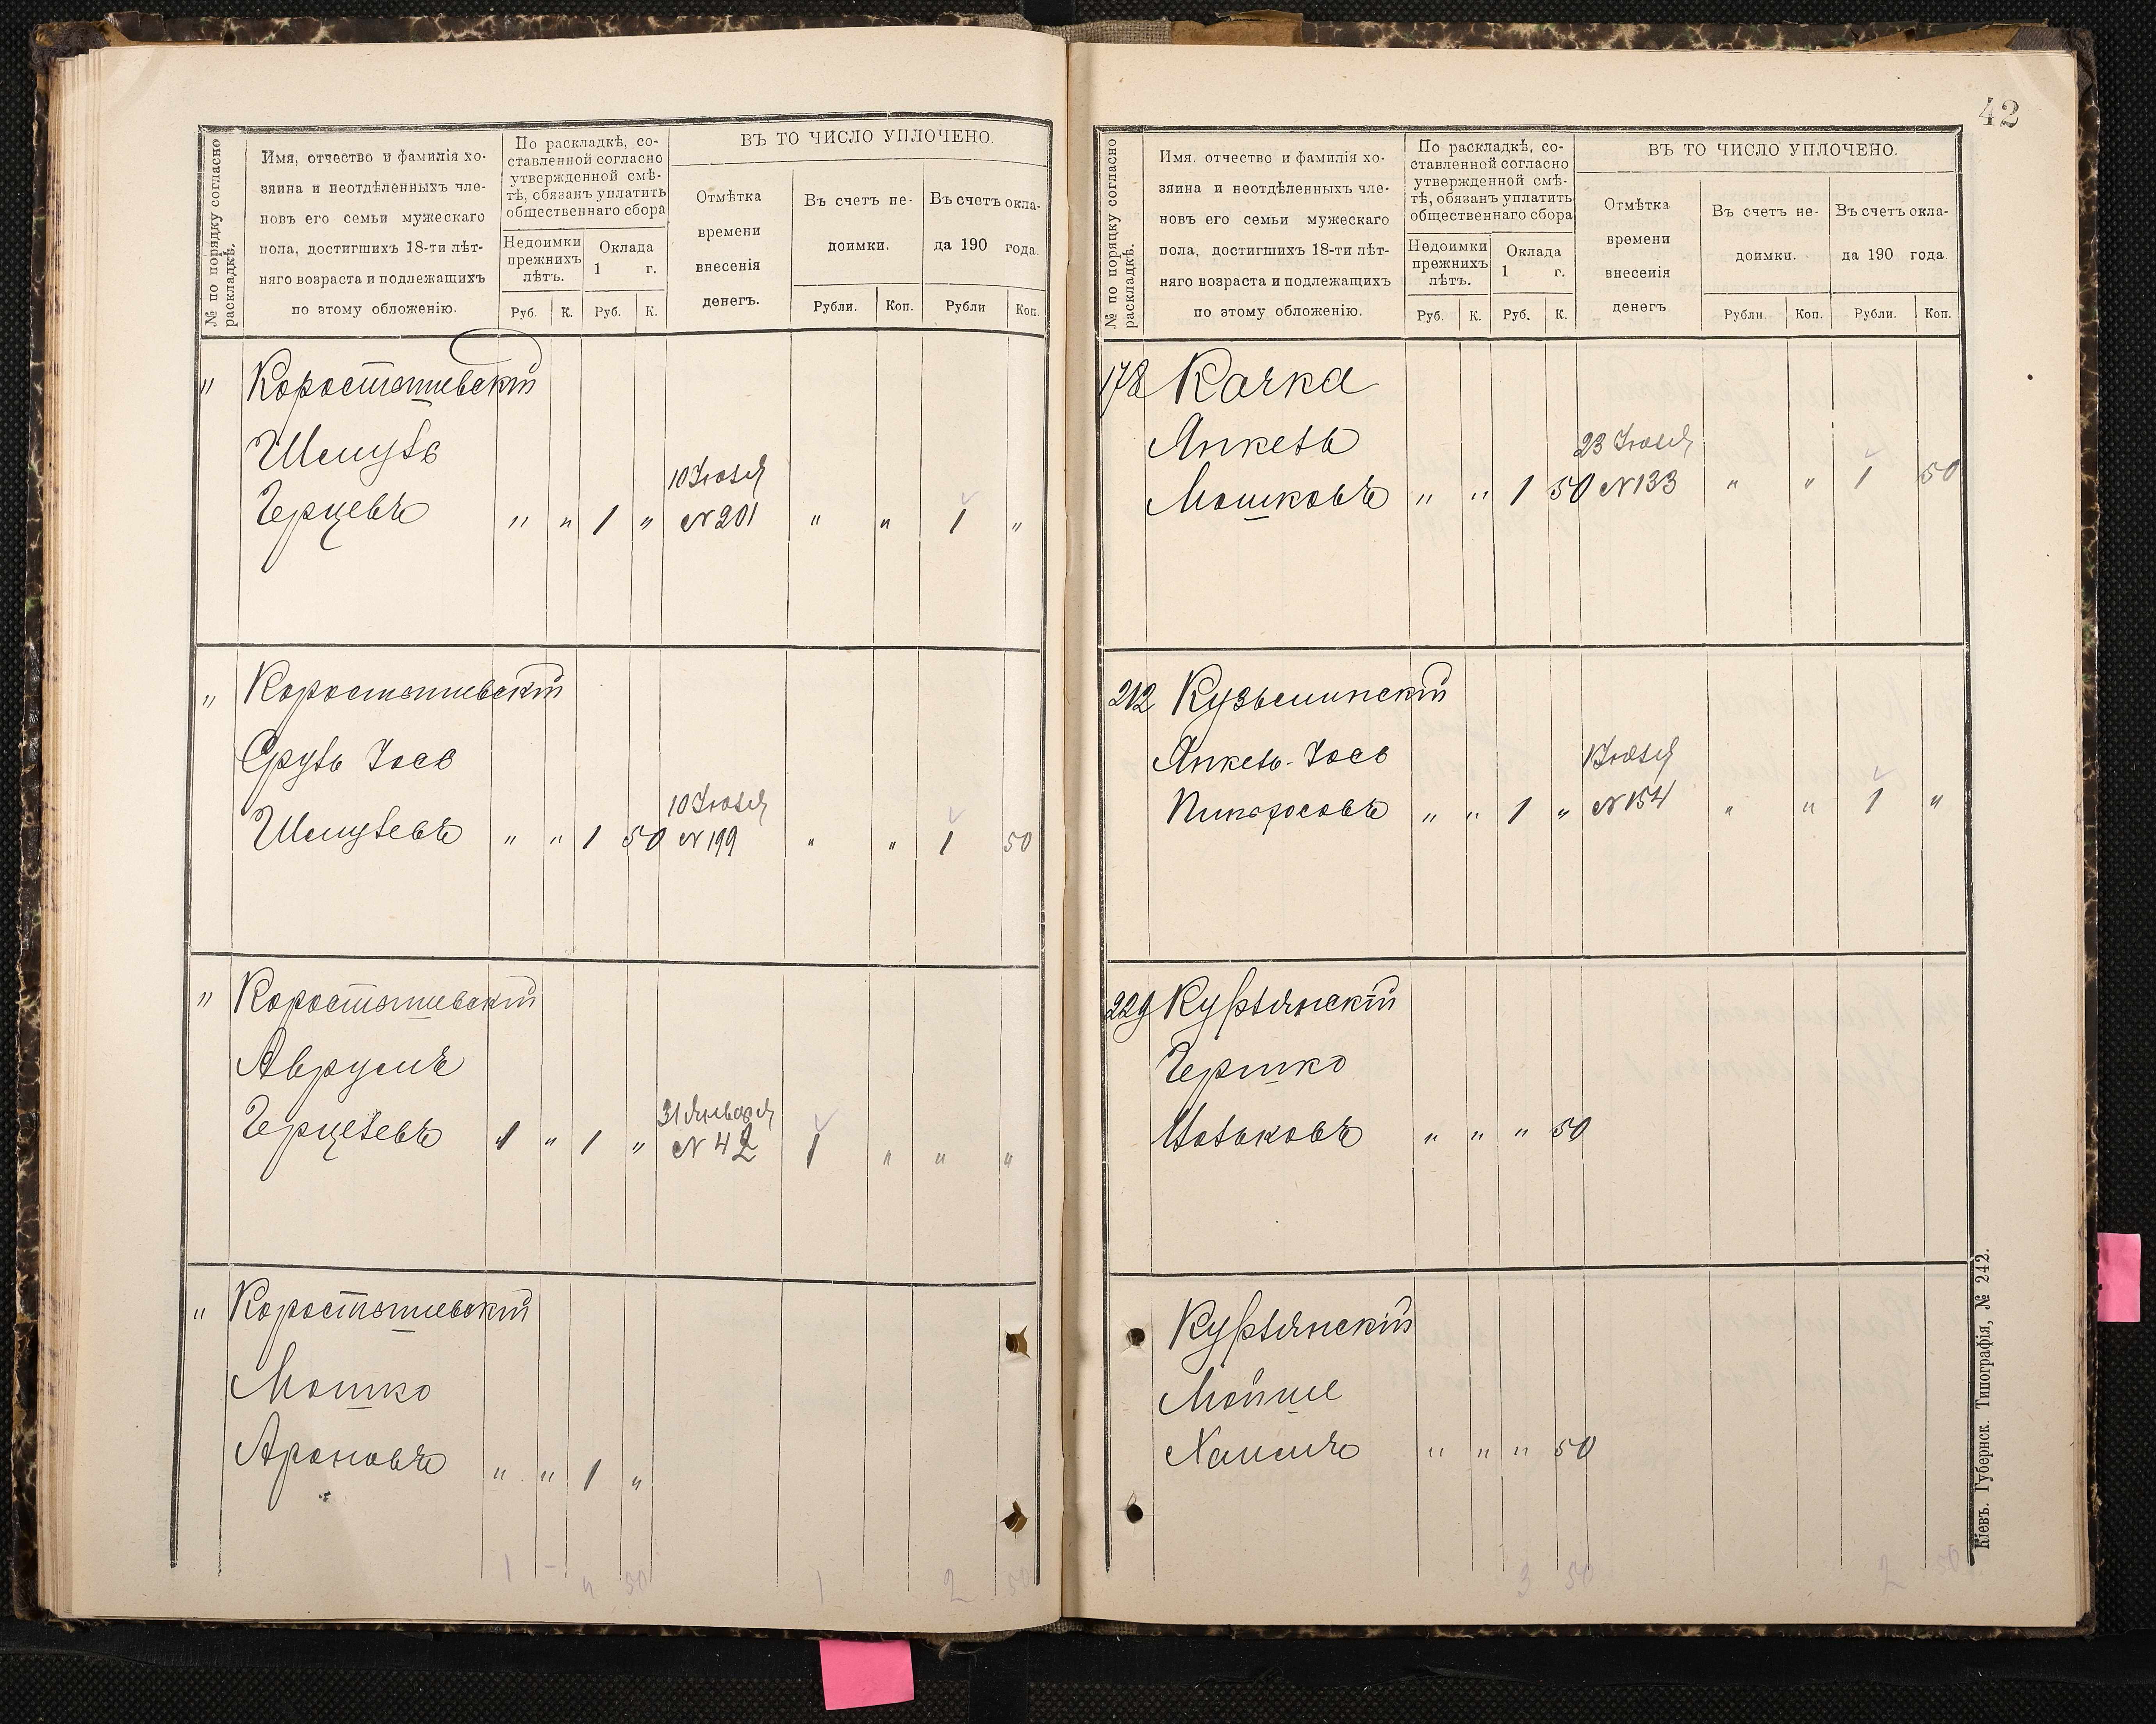 № по порядку согласно раскладкѣ.
Имя, отчество и фамилія хо-
зяина и неотдѣленныхъ чле-
новъ его семьи мужескаго
пола, достигшихъ 18-ти лѣт-
няго возраста и подлежащихъ
по этому обложенію.
По раскладкѣ, со-
ставленной согласно
утвержденной смѣ-
тѣ, обязанъ уплатить
общественнаго сбора
Недоимки
прежнихъ
лѣтъ.
Оклада
1 г.
Руб. К. Руб. К.
ВЪ ТО ЧИСЛО УПЛОЧЕНО.
Отмѣтка
времени
внесенія
денегъ.
Въ счетъ не-
доимки.
Рубли. Коп.
Въ счетъ окла-
да 190 года.
Рубли Коп.
" Коростышевскій
Шмуль
10 Іюля
Герцевъ " " 1 " № 201 " " 1 "
" Коростышевскій
Сруль Іось
10 Іюля
Шмулевъ " " 1 50 № 199 " " 1 50
" Коростышевскій
Аврумъ
31 Января
Герцелевъ 1 " 1 " № 42 1 " " "
" Коростышевскій
Мошко
Ароновъ " " 1 "
1 - 4 50 1 2 50
42
№ по порядку согласно раскладкѣ.
Имя. отчество и фамилія хо-
зяина и неотдѣленныхъ чле-
новъ его семьи мужескаго
пола, достигшихъ 18-ти лѣт-
няго возраста и подлежащихъ
по этому обложенію.
По раскладкѣ, со-
ставленной согласно
утвержденной смѣ-
тѣ, обязанъ уплатить
общественнаго сбора
Недоимки
прежнихъ
лѣтъ.
Оклада
1 г.
Руб. К. Руб. К.
ВЪ ТО ЧИСЛО УПЛОЧЕНО.
Отмѣтка
времени
внесенія
денегъ.
Въ счетъ не-
доимки.
Рубли. Коп.
Въ счетъ окла-
да 190 года.
Рубли. Коп.
178 Качка
Янкель
23 Іюля
Мошковъ " " 1 50 № 133 " " 1 50
212 Кузьминскій
Янкель-Іось
1 Іюля
Пинхосовъ " " 1 " № 154 " " 1 "
229 Курлянскій
Гершко
" " " 50
Курлянскій
Мойше
Хаимъ " " " 50
3 50 2 50
Кіевъ. Губернск. Типографія, № 242.